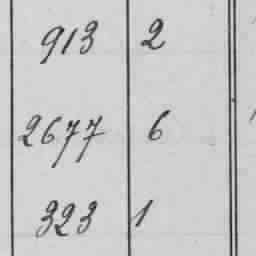 913 2
2677 6
323 1